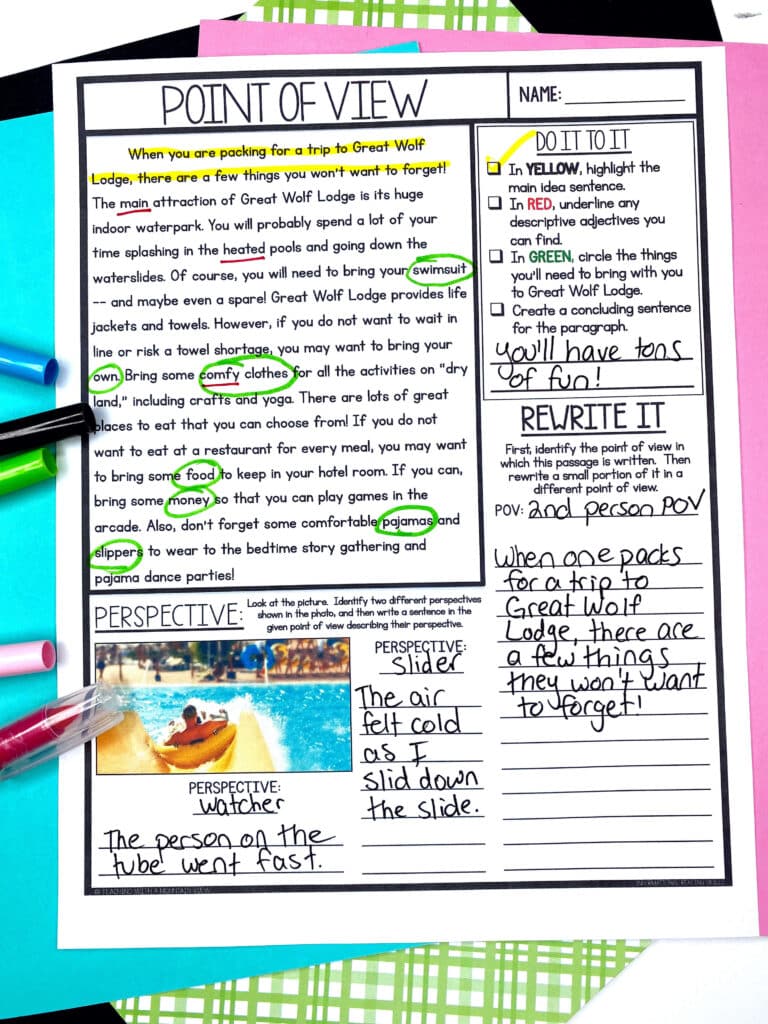 POINT OF VIEW
NAME:
When you are packing for a trip to Great Wolf
Lodge, there are a few things you won't want to forget!
The main attraction of Great Wolf Lodge is its huge
indoor waterpark. You will probably spend a lot of your
time splashing in the heated pools and going down the
waterslides. Of course, you will need to bring your swimsuit
-- and maybe even a spare! Great Wolf Lodge provides life
jackets and towels. However, if you do not want to wait in
line or risk a towel shortage, you may want to bring your
own. Bring some comfy clothes for all the activities on "dry
land," including crafts and yoga. There are lots of great
places to eat that you can choose from! If you do not
want to eat at a restaurant for every meal, you may want
to bring some food to keep in your hotel room. If you can,
bring some money so that you can play games in the
arcade. Also, don't forget some comfortable pajamas and
slippers to wear to the bedtime story gathering and
pajama dance parties!
DO IT TO IT
In YELLOW, highlight the
main idea sentence.
In RED, underline any
descriptive adjectives you
can find.
In GREEN, circle the things
you'll need to bring with you
to Great Wolf Lodge.
Create a concluding sentence
for the paragraph.
you'll have tons
of fun!
REWRITE IT
First, identify the point of view in
which this passage is written. Then
rewrite a small portion of it in a
different point of view.
POV: 2nd person POV
When one packs
for a trip to
Great Wolf
Lodge, there are
a few things
they won't want
to forget!
PERSPECTIVE:
Look at the picture. Identify two different perspectives
shown in the photo, and then write a sentence in the
given point of view describing their perspective.
PERSPECTIVE:
slider
The air
felt cold
as I
slid down
the slide.
PERSPECTIVE:
watcher
The person on the
tube went fast.
© TEACHING WITH A MOUNTAIN VIEW